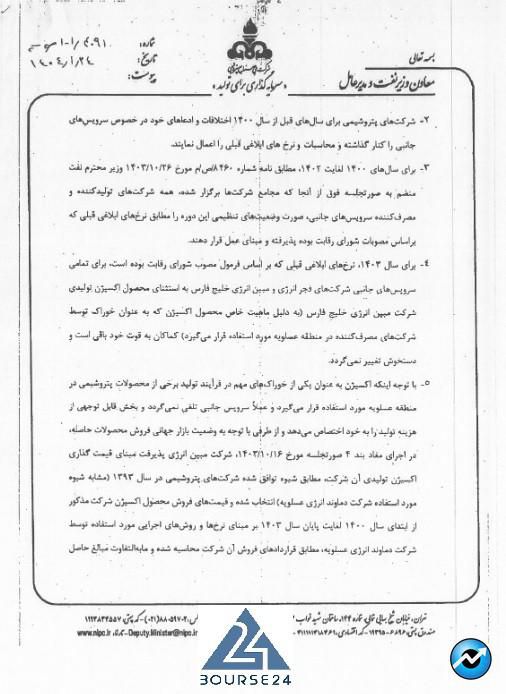 بسمه تعالی
معاون وزیر نفت و مدیرعامل
شماره:
تاریخ: ۱۴۰۴/۱/۲۴
پیوست:
«سرمایه‌گذاری برای تولید»
۲- شرکت‌های پتروشیمی برای سال‌های قبل از سال ۱۴۰۰ اختلافات و ادعاهای خود در خصوص سرویس‌های
جانبی را کنار گذاشته و محاسبات و نرخ های ابلاغی قبلی را اعمال نمایند.
۳- برای سال‌های ۱۴۰۰ لغایت ۱۴۰۲، مطابق نامه شماره ۸۴۶۰/ص/م مورخ ۱۴۰۳/۱۰/۲۶ وزیر محترم نفت
منضم به صورتجلسه فوق از آنجا که مجامع شرکت‌ها برگزار شده، همه شرکت‌های تولیدکننده و
مصرف‌کننده سرویس‌های جانبی، صورت وضعیت‌های تنظیمی این دوره را مطابق نرخ‌های ابلاغی قبلی که
براساس مصوبات شورای رقابت بوده پذیرفته و مبنای عمل قرار دهند.
۴- برای سال ۱۴۰۳، نرخ‌های ابلاغی قبلی که بر اساس فرمول مصوب شورای رقابت بوده است، برای تمامی
سرویس های جانبی شرکت‌های فجر انرژی و مبین انرژی خلیج فارس به استثنای محصول اکسیژن تولیدی
شرکت مبین انرژی خلیج فارس (به دلیل ماهیت خاص محصول اکسیژن که به عنوان خوراک توسط
شرکت‌های مصرف‌کننده در منطقه عسلویه مورد استفاده قرار می‌گیرد) کماکان به قوت خود باقی است و
دستخوش تغییر نمی‌گردد.
۵- با توجه اینکه اکسیژن به عنوان یکی از خوراک‌های مهم در فرآیند تولید برخی از محصولات پتروشیمی در
منطقه عسلویه مورد استفاده قرار می‌گیرد و عملاً سرویس جانبی تلقی نمی‌گردد و بخش قابل توجهی از
هزینه تولید را به خود اختصاص می‌دهد و از طرفی با توجه به وضعیت بازار جهانی فروش محصولات حاصله،
در اجرای مفاد بند ۴ صورتجلسه مورخ ۱۴۰۳/۱۰/۱۶، شرکت مبین انرژی پذیرفت مبنای قیمت گذاری
اکسیژن تولیدی آن شرکت، مطابق شیوه توافق شده شرکت‌های پتروشیمی در سال ۱۳۹۳ (مشابه شیوه
مورد استفاده شرکت دماوند انرژی عسلویه) انتخاب شده و قیمت‌های فروش محصول اکسیژن شرکت مذکور
از ابتدای سال ۱۴۰۰ لغایت پایان سال ۱۴۰۳ بر مبنای نرخ‌ها و روش‌های اجرایی مورد استفاده توسط
شرکت دماوند انرژی عسلویه، مطابق قراردادهای فروش آن شرکت محاسبه شده و مابه‌التفاوت مبالغ حاصل
تهران، خیابان شیخ بهایی شمالی، شماره ۱۴۴، ساختمان شهید نواب ۲
www.nipc.ir Deputy.Minister@nipc.ir
24
BOURSE24